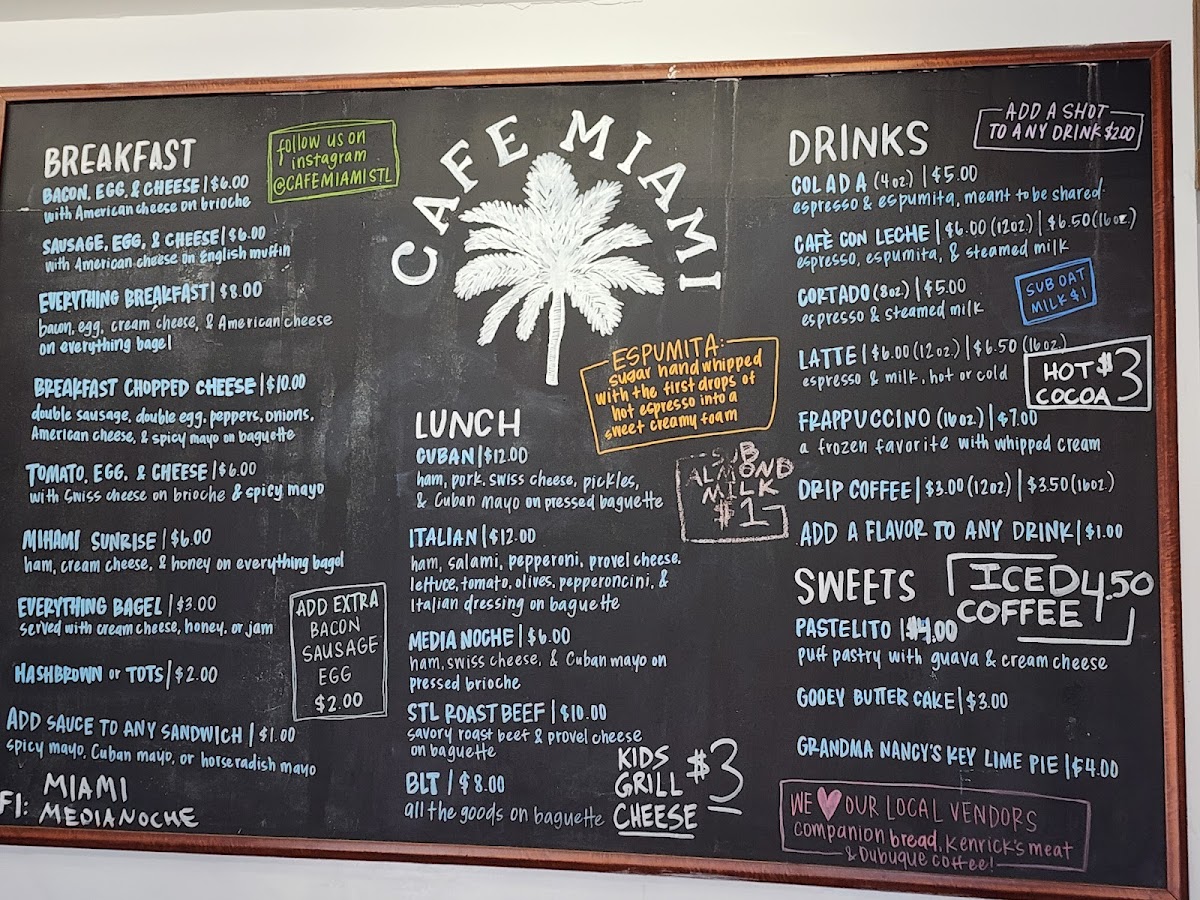 BREAKFAST
BACON, EGG, & CHEESE | $6.00
with American cheese on brioche
SAUSAGE, EGG, & CHEESE | $6.00
with American cheese on English muffin
EVERYTHING BREAKFAST | $8.00
bacon, egg, cream cheese, & American cheese
on everything bagel
BREAKFAST CHOPPED CHEESE | $10.00
double sausage, double egg, peppers, onions,
American cheese, & spicy mayo on baguette
TOMATO, EGG, & CHEESE | $6.00
with Swiss cheese on brioche & spicy mayo
MIHAMI SUNRISE | $6.00
ham, cream cheese, & honey on everything bagel
EVERYTHING BAGEL | $3.00
served with cream cheese, honey, or jam
HASHBROWN or TOTS | $2.00
ADD SAUCE TO ANY SANDWICH | $1.00
spicy mayo, Cuban mayo, or horseradish mayo
FI: MIAMI
MEDIANOCHE
follow us on
instagram
@CAFEMIAMISTL
ADD EXTRA
BACON
SAUSAGE
EGG
$2.00
CAFE MIAMI
ESPUMITA:
sugar hand whipped
with the first drops of
hot espresso into a
sweet creamy foam
LUNCH
CUBAN | $12.00
ham, pork, swiss cheese, pickles,
& Cuban mayo on pressed baguette
ITALIAN | $12.00
ham, salami, pepperoni, provel cheese,
lettuce, tomato, olives, pepperoncini, &
Italian dressing on baguette
MEDIA NOCHE | $6.00
ham, swiss cheese, & Cuban mayo on
pressed brioche
STL ROAST BEEF | $10.00
savory roast beef & provel cheese
on baguette
BLT | $8.00
all the goods on baguette
KIDS
GRILL
CHEESE
$3
SUB
ALMOND
MILK
$1
DRINKS
ADD A SHOT
TO ANY DRINK $2.00
COLADA (4oz.) | $5.00
espresso & espumita, meant to be shared
CAFÈ CON LECHE | $6.00 (12oz.) | $6.50 (16oz.)
espresso, espumita, & steamed milk
CORTADO (8oz) | $5.00
espresso & steamed milk
SUB OAT
MILK $1
LATTE | $6.00 (12oz.) | $6.50 (16oz.)
espresso & milk, hot or cold
HOT
COCOA
$3
FRAPPUCCINO (16oz) | $7.00
a frozen favorite with whipped cream
DRIP COFFEE | $3.00 (12oz) | $3.50 (16oz.)
ADD A FLAVOR TO ANY DRINK | $1.00
SWEETS
ICED
COFFEE
4.50
PASTELITO | $4.00
puff pastry with guava & cream cheese
GOOEY BUTTER CAKE | $3.00
GRANDMA NANCY'S KEY LIME PIE | $4.00
WE ♥ OUR LOCAL VENDORS
companion bread, Kenrick's meat
& Dubuque coffee!